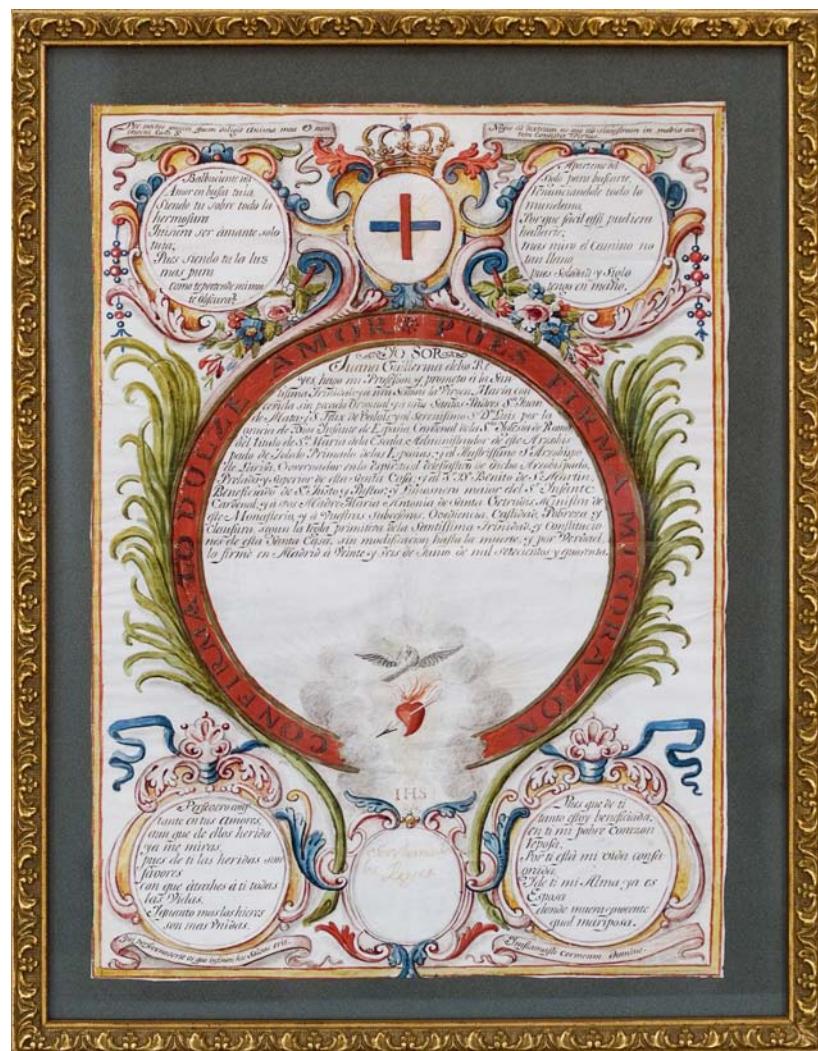 Per noctes quæsivi quem diligit Anima mea & non
inveni
Neque ad dextram neque ad sinistram in media
Amor en busca tuia,
Siendo tu sobre todo la
hermosura
Quisiera ser amante solo
tuia,
Pues siendo tu la luz
mas pura
como te pretende mi muer
te obscura?
Aparteme del
siglo para buscarte,
Renunciandole todo lo
mundano,
Por que facil assi pudiera
hallarte,
mas miro el Camino no
tan llano
pues Soledad y Siglo
tengo en mano.
CONFIRMATO DULZE AMOR PUES FIRMA MI CORAZON
YO SOR
Juana Guillerma delos Re
yes, hago mi Profession, y prometo à la San
tissima Trinidad, y a nra Señora la Virgen Maria con
cevida sin pecado original, y a nros Santos Padres Sn. Juan
de Mata, y Sn. Felix de Valois, y al Serenissimo Sr. Dn. Luis por la
Gracia de Dios Infante de España Cardenal dela Sta. Yglesia de Roma
del titulo de Sta. Maria dela Escala Administrador de este Arzobis
pado de Toledo Primado de las Españas, y al Illustrissimo Sr. Arzobispo
de Larisa, Governador en lo espiritual de dicho Arzobispado,
Prelado, y Superior de esta Santa Casa, y al Sr. Dn. Benito de Sn. Martin,
Beneficiado de Sn. Justo y Pastor, y Limosnero maior del Sr. Infante
Cardenal, y à vos Madre Maria Antonia de Santa Getrudis Ministra de
este Monasterio, y à Vuestras Subcesoras, Ovediencia, Castidad, Pobreza, y
Clausura, segun la regla primitiva dela Santissima Trinidad, y Constitucio
nes de esta Santa Casa, sin modificacion hasta la muerte, y por Verdad
lo firmè en Madrid à Veinte y Seis de Junio de mil Setecientos y quarenta.
IHS
Persevero cons
tante en tus Amores,
aun que de ellos herida
ya me miras,
pues de ti las heridas son
favores
con que atrahes à ti todas
las Vidas,
Y quanto mas las hieres
son mas Vnidas.
Reyes
Pues que de ti
tanto estoy beneficiada,
en ti mi pobre Corazon
reposa,
Por ti està mi vida consa
grada,
Y de ti mi Alma ya es
Esposa
donde muera
qual mariposa.
Inflamasti cor meum Domine.